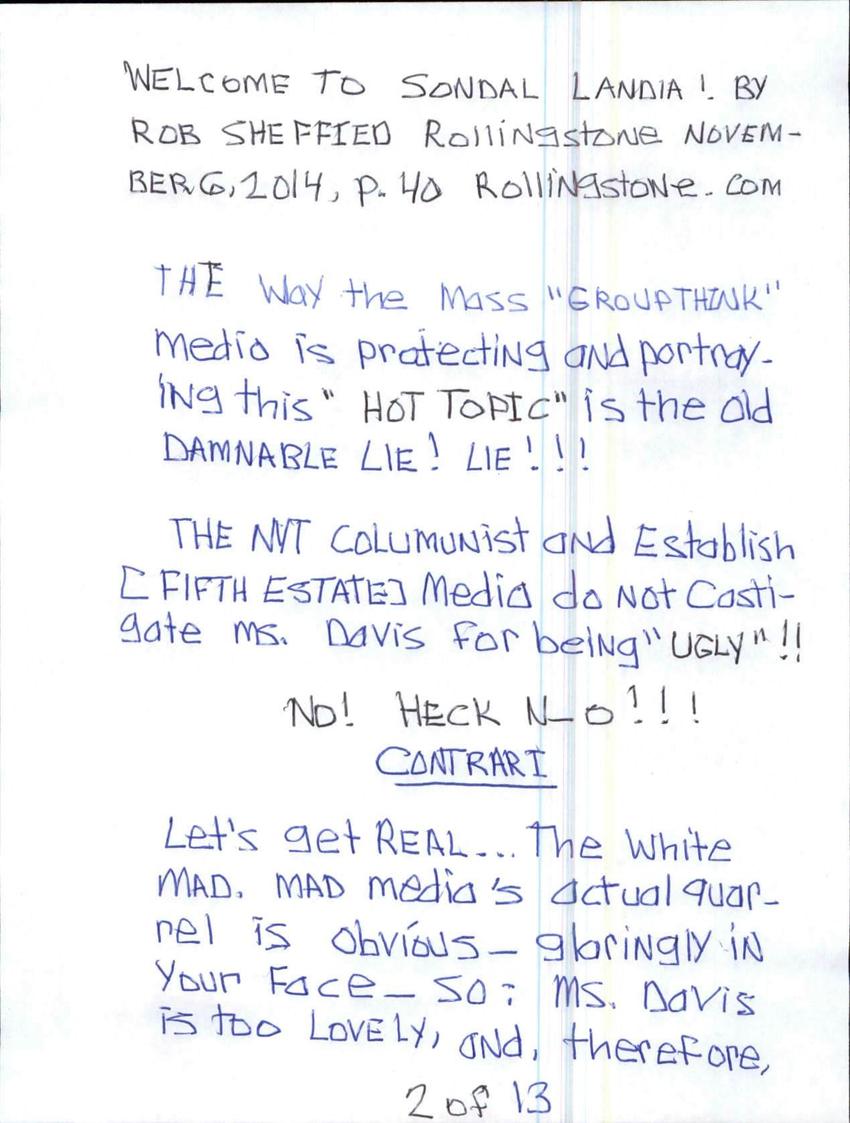 WELCOME TO SONDAL LANDIA! BY
ROB SHEFFIED Rollingstone NOVEM-
BER 6, 2014, p. 40 Rollingstone.com
THE Way the Mass "GROUPTHINK"
Media is protecting and portray-
ing this "HOT TOPIC" is the old
DAMNABLE LIE! LIE!!!
THE NYT COLUMUNist and Establish
[FIFTH ESTATE] Media do NOT Casti-
gate ms. Davis for being "UGLY"!!
NO! HECK N-o!!!
CONTRARI
Let's get REAL... The White
MAD. MAD media's actual quar-
rel is obvious- glaringly in
your Face- so: Ms. Davis
is too LOVELY, and, therefore,
2 of 13